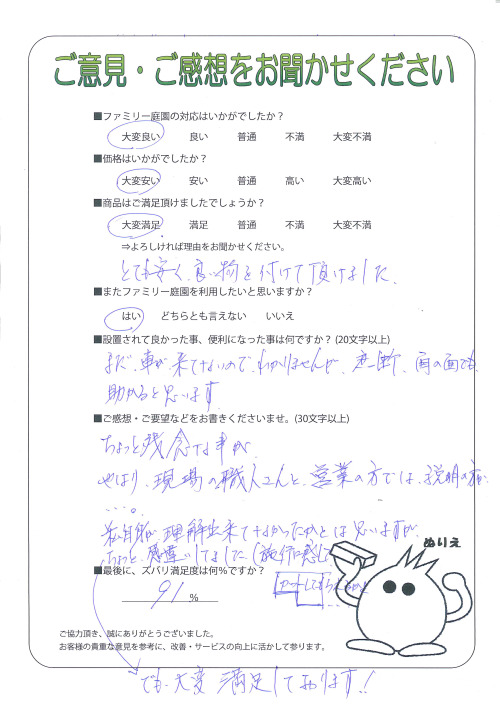 ご意見・ご感想をお聞かせください
■ファミリー庭園の対応はいかがでしたか？
大変良い 良い 普通 不満 大変不満
■価格はいかがでしたか？
大変安い 安い 普通 高い 大変高い
■商品はご満足頂けましたでしょうか？
大変満足 満足 普通 不満 大変不満
⇒よろしければ理由をお聞かせください。
とても安く、良い物を付けて頂けました。
■またファミリー庭園を利用したいと思いますか？
はい どちらとも言えない いいえ
■設置されて良かった事、便利になった事は何ですか？(20文字以上)
まだ、車が来てないので、わかりませんが、 雨の面でも
助かると思います
■ご感想・ご要望などをお書きくださいませ。(30文字以上)
ちょっと残念な事が
やはり、現場の職人さんと、営業の方では、説明の方が
…。
私自身が理解出来てなかったかとは思いますが、
ちょっと、感違いしてました(施行に感して
■最後に、ズバリ満足度は何％ですか？
91 %
ぬりえ
ご協力頂き、誠にありがとうございました。
お客様の貴重な意見を参考に、改善・サービスの向上に活かして参ります。
でも、大変満足しております!!